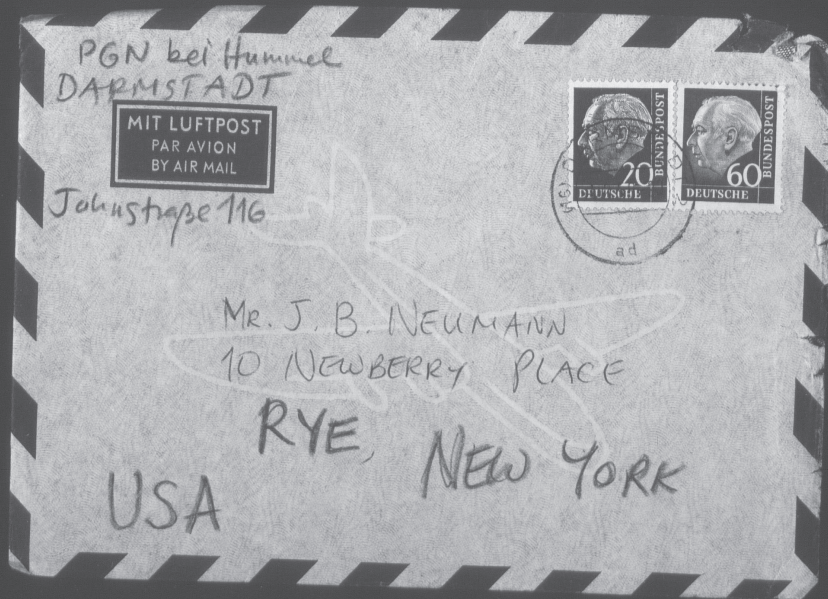 PGN bei Hummel
DARMSTADT
MIT LUFTPOST
PAR AVION
BY AIR MAIL
Johnstraße 116
20
BUNDESPOST
DEUTSCHE
60
BUNDESPOST
DEUTSCHE
(16)
ad
MR. J. B. NEUMANN
10 NEWBERRY PLACE
RYE, NEW YORK
USA